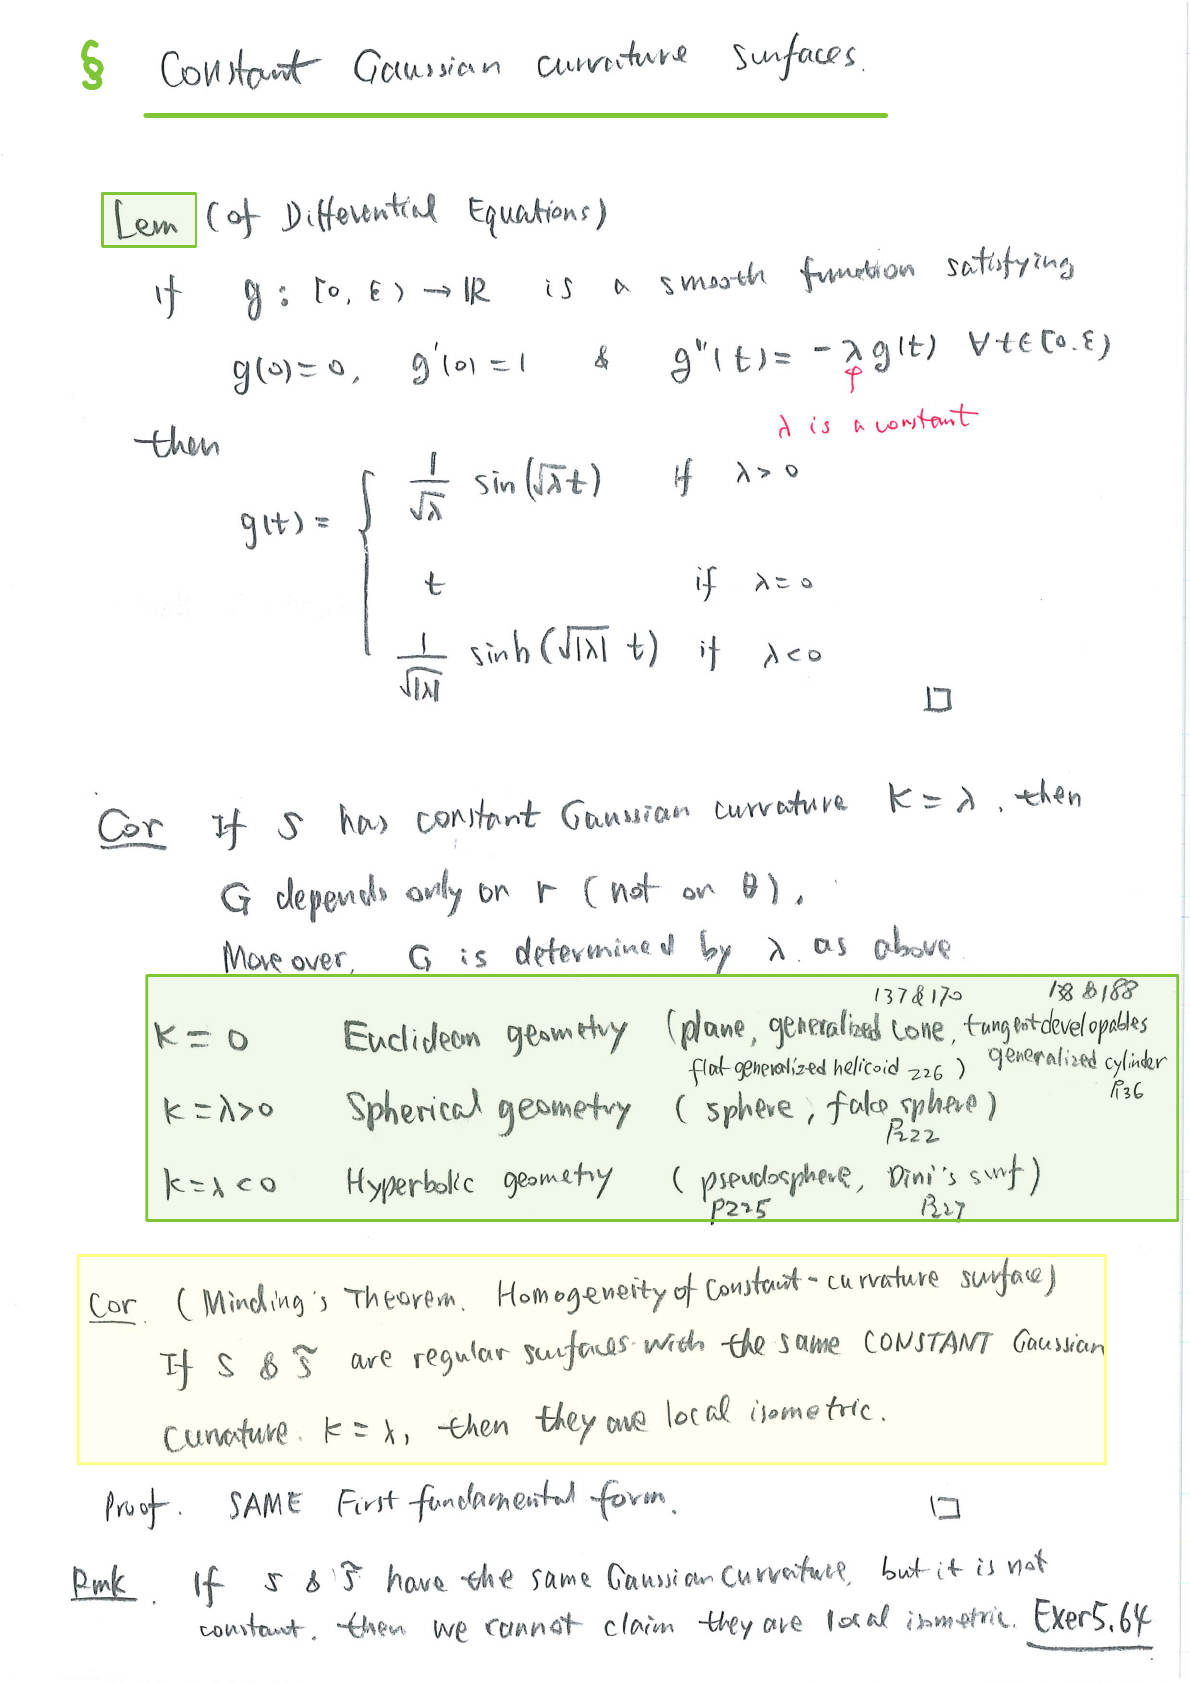 § Constant Gaussian curvature surfaces.
Lem (of Differential Equations)
If g : [0, ε) → ℝ is a smooth function satisfying
g(0)=0, g'(0)=1 & g''(t)= -λg(t) ∀t∈[0.ε)
λ is a constant
then
g(t) = { 1/√λ sin(√λt) if λ>0
t if λ=0
1/√|λ| sinh(√|λ| t) if λ<0
□
Cor If S has constant Gaussian curvature K=λ, then
G depends only on r (not on θ).
Moreover, G is determined by λ as above
137&170 138&188
K=0 Euclidean geometry (plane, generalized cone, tangent developables
flat generalized helicoid 226) generalized cylinder
P136
K=λ>0 Spherical geometry (sphere, fake sphere)
P222
K=λ<0 Hyperbolic geometry (pseudosphere, Dini's surf)
P225 P227
Cor. (Minding's Theorem. Homogeneity of constant-curvature surface)
If S & S̃ are regular surfaces with the same CONSTANT Gaussian
Curvature. K=λ, then they are local isometric.
Proof. SAME First fundamental form. □
Rmk. If S & S̃ have the same Gaussian Curvature, but it is not
constant. then we cannot claim they are local isometric. Exer5.64